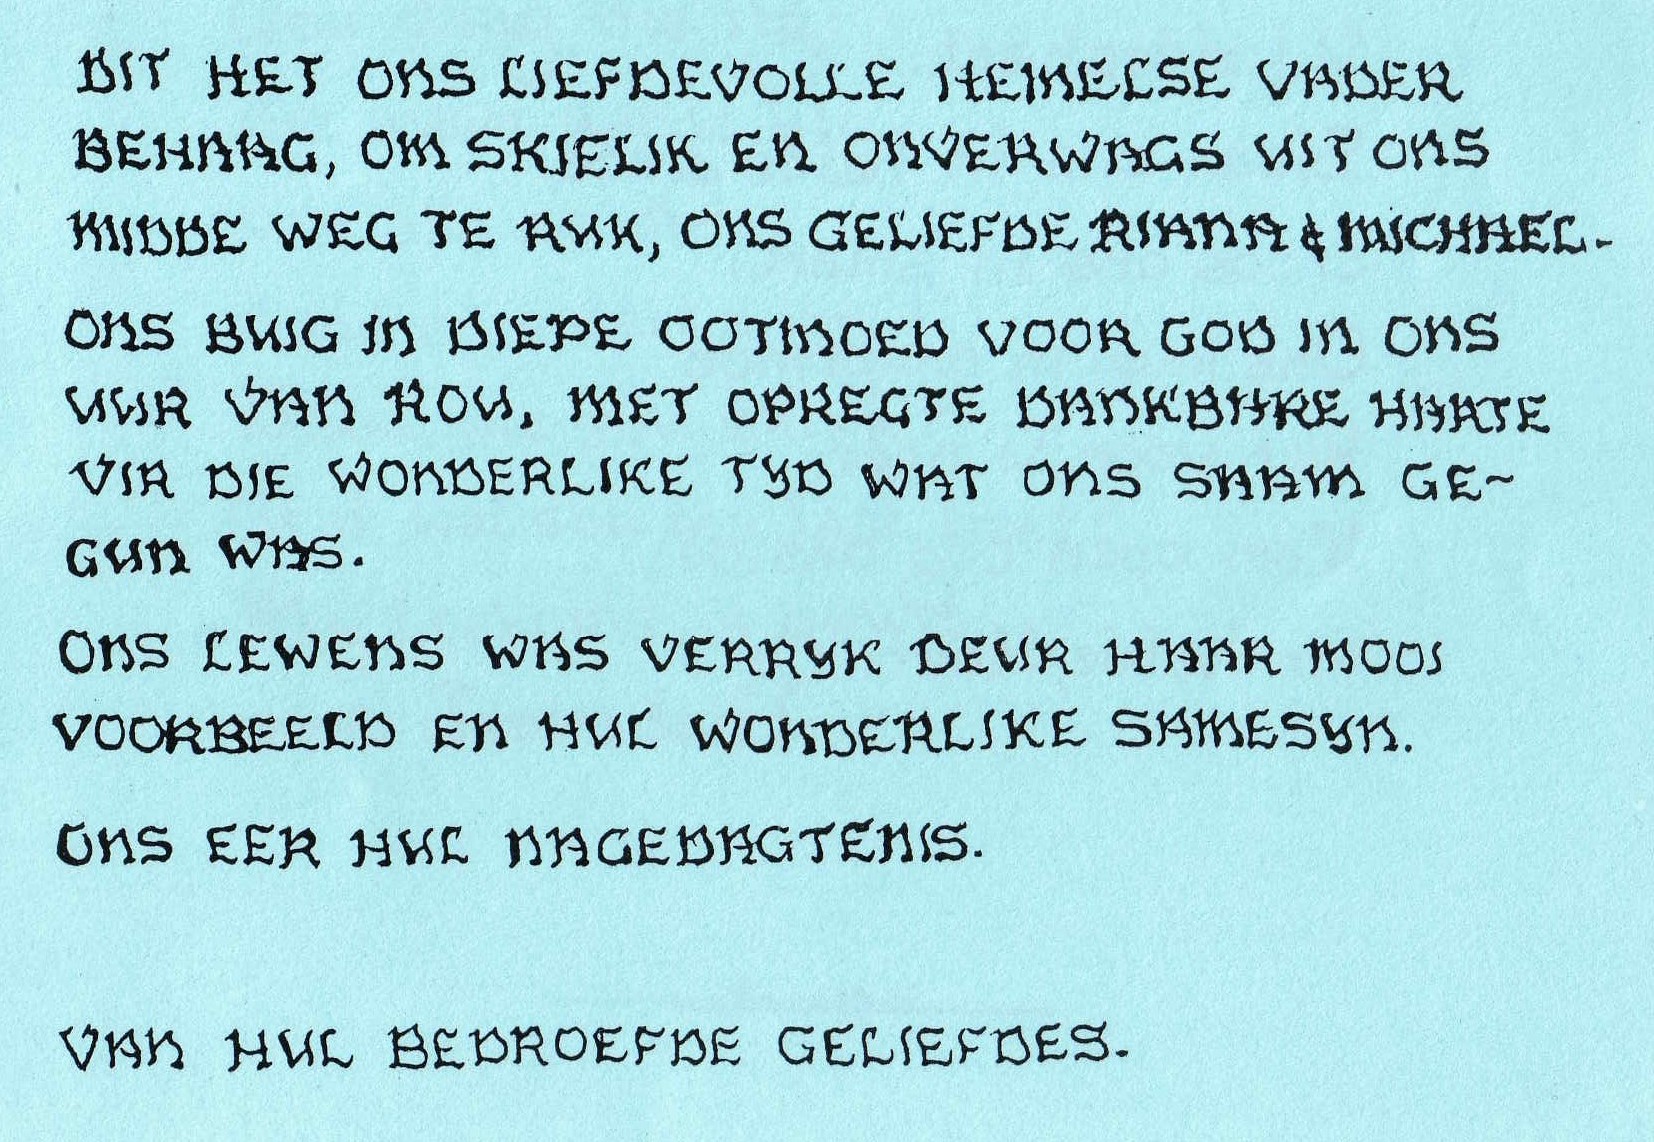 DIT HET ONS LIEFDEVOLLE HEMELSE VADER
BEHAAG, OM SKIELIK EN ONVERWAGS UIT ONS
MIDDE WEG TE RUK, ONS GELIEFDE RIANA & MICHAEL.
ONS BUIG IN DIEPE OOTMOED VOOR GOD IN ONS
UUR VAN ROU, MET OPREGTE DANKBARE HARTE
VIR DIE WONDERLIKE TYD WAT ONS SAAM GE~
GUN WAS.
ONS LEWENS WAS VERRYK DEUR HAAR MOOI
VOORBEELD EN HUL WONDERLIKE SAMESYN.
ONS EER HUL NAGEDAGTENIS.
VAN HUL BEDROEFDE GELIEFDES.